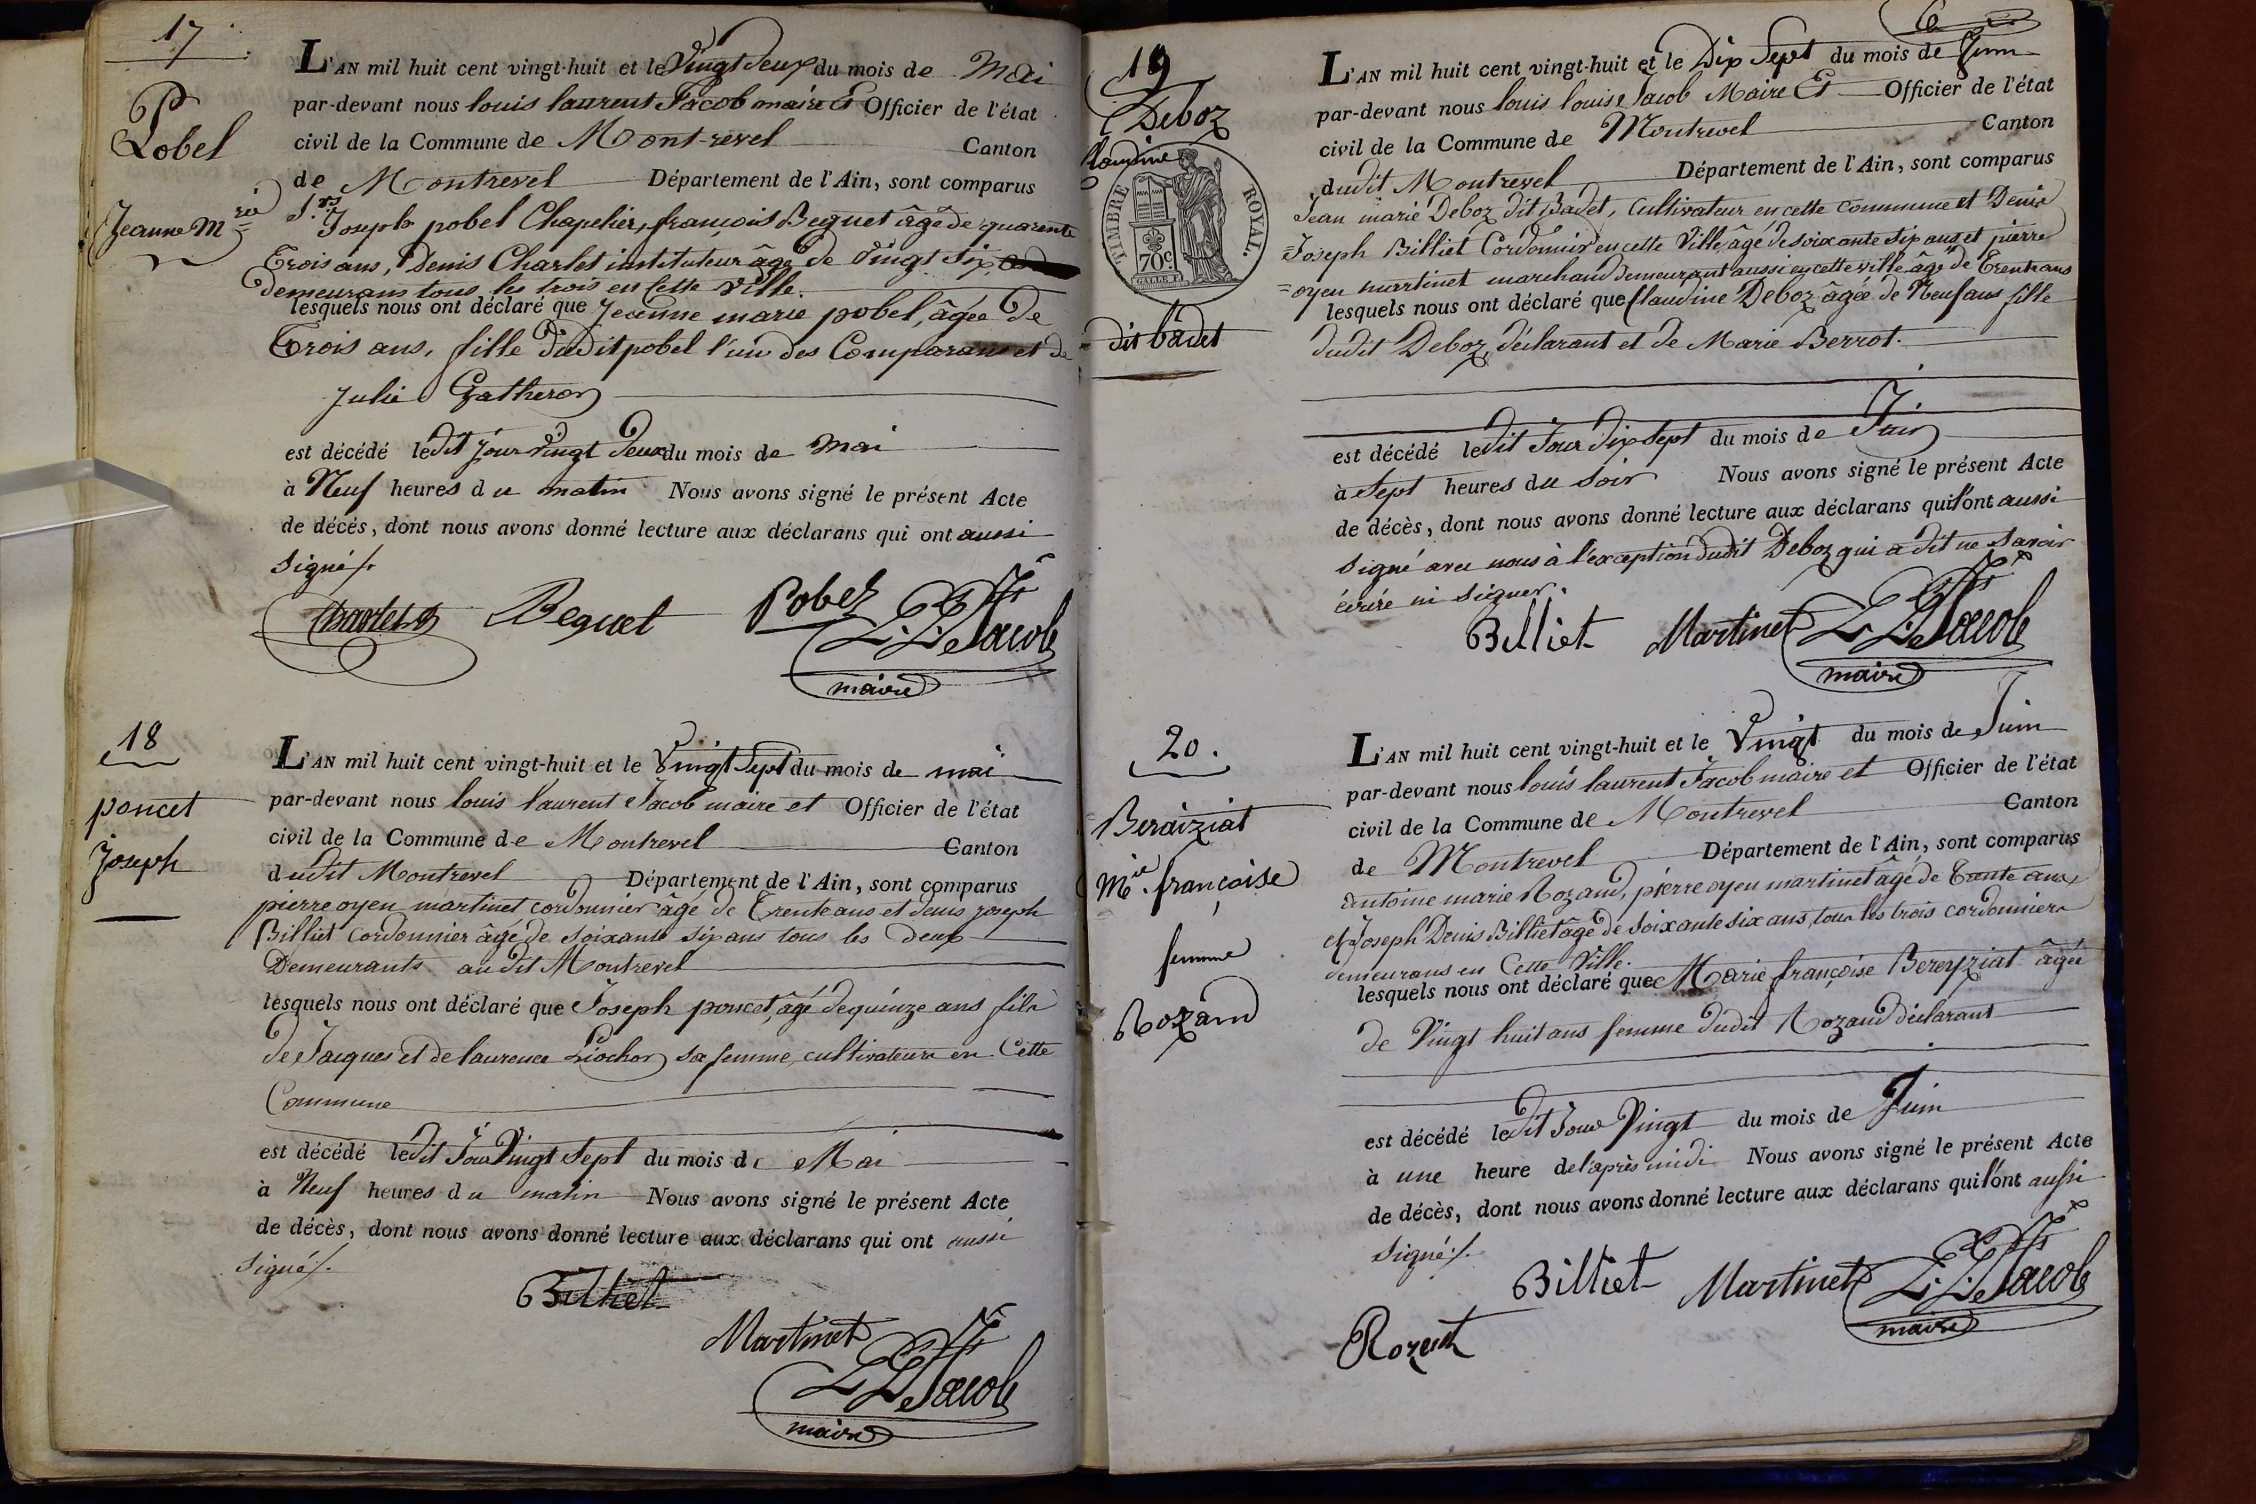 17
L'AN mil huit cent vingt-huit et le Vingt deux du mois de Mai
par-devant nous louis laurent Jacob maire et Officier de l'état
civil de la Commune de Montrevel Canton
de Montrevel Département de l'Ain, sont comparus
Pobel
Jeanne M.rie
S.rs Joseph pobel Chapelier, françois Beguet âgé de quarente
Trois ans, Denis Charlet instituteur âgé de Vingt Six
demeurans tous les trois en Cette Ville.
lesquels nous ont déclaré que Jeanne marie pobel, âgée de
Trois ans, fille dudit pobel l'un des Comparans et de
Julie Gatheron
est décédé ledit jour Vingt deux du mois de mai
à Neuf heures du matin Nous avons signé le présent Acte
de décés, dont nous avons donné lecture aux déclarans qui ont aussi
signé/.
Charlet Beguet Pobel L. L. Jacob
maire
18
poncet
Joseph
L'AN mil huit cent vingt-huit et le Vingt Sept du mois de mai
par-devant nous louis laurent Jacob maire et Officier de l'état
civil de la Commune de Montrevel Canton
dudit Montrevel Département de l'Ain, sont comparus
pierre oyen martinet cordonnier âgé de Trente ans et denis joseph
Billiet Cordonnier âgé de soixante six ans tous les deux
Demeurants audit Montrevel
lesquels nous ont déclaré que Joseph poncet, âgé de quinze ans fils
de Jacques et de laurence Liochon sa femme, cultivateurs en Cette
Commune
est décédé ledit Jour Vingt Sept du mois de Mai
à Neuf heures du matin Nous avons signé le présent Acte
de décès, dont nous avons donné lecture aux déclarans qui ont aussi
signé/.
Billiet
Martinet
L. L. Jacob
maire
6
19
Deboz
Claudine
TIMBRE ROYAL.
70c
dit badet
L'AN mil huit cent vingt-huit et le Dix Sept du mois de Juin
par-devant nous louis louise Jacob Maire Et Officier de l'état
civil de la Commune de Montrevel Canton
dudit Montrevel Département de l'Ain, sont comparus
Jean marie Deboz dit Badet, Cultivateur en cette Commune et Denis
=Joseph Billiet Cordonnier en cette Ville âgé de soixante six ans et pierre
=oyen martinet marchand demeurant aussi en cette ville âgé de Trente ans
lesquels nous ont déclaré que Claudine Deboz âgée de Neuf ans fille
dudit Deboz, déclarant et de Marie Berrot.
est décédé ledit Jour dix Sept du mois de Juin
à Sept heures du Soir Nous avons signé le présent Acte
de décès, dont nous avons donné lecture aux déclarans qui l'ont aussi
signé avec nous à l'exception dudit Deboz qui a dit ne savoir
écrire ni signer.
Billiet Martinet L. L. Jacob
maire
20.
Beraiziat
M.ie françoise
femme
Rozand
L'AN mil huit cent vingt-huit et le Vingt du mois de Juin
par-devant nous louis laurent Jacob maire et Officier de l'état
civil de la Commune de Montrevel Canton
de Montrevel Département de l'Ain, sont comparus
antoine marie Rozand, pierre oyen martinet âgé de Trente ans
et Joseph Denis Billiet âgé de soixante six ans, tous les trois cordonniers
demeurans en Cette Ville.
lesquels nous ont déclaré que Marie françoise Bereyziat âgée
de Vingt huit ans femme dudit Rozand déclarant
est décédé ledit Jour Vingt du mois de Juin
à une heure de l'après midi Nous avons signé le présent Acte
de décès, dont nous avons donné lecture aux déclarans qui l'ont aussi
signé/.
Billiet Martinet L. L. Jacob
maire